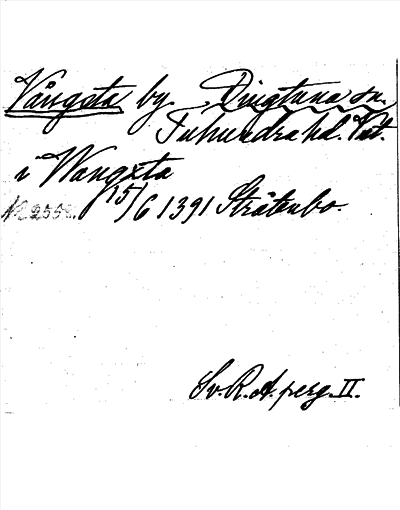 Vångsta by. Dingtuna sn.
Tuhundra hd. Vst.
i Wangxta
N: 2555. 15/6 1391 Stråtenbo.
Sv. R. A. perg. II.